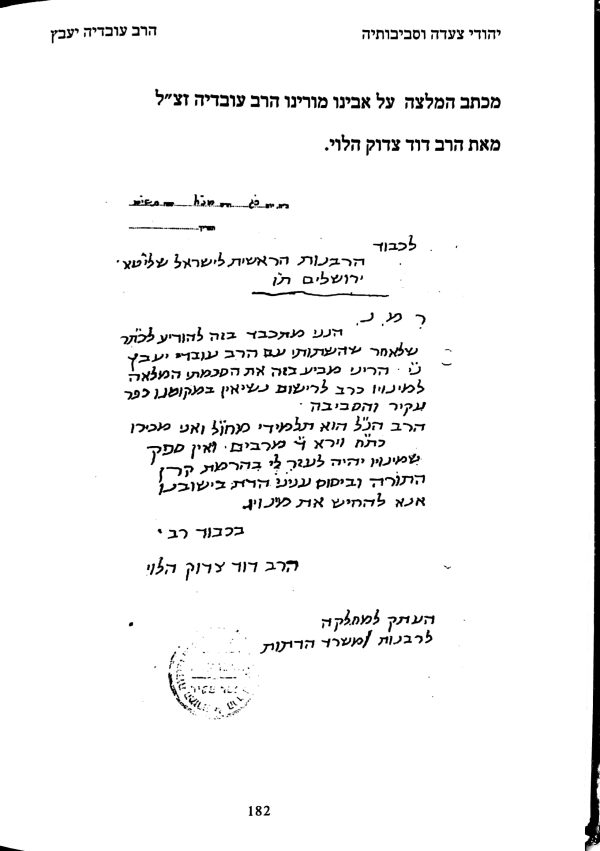 יהודי צעדה וסביבותיה
הרב עובדיה יעבץ
מכתב המלצה על אבינו מורינו הרב עובדיה זצ״ל
מאת הרב דוד צדוק הלוי.
לכבוד
הרבנות הראשית לישראל שליט״א
ירושלים ת״ו
הנני מתכבד בזה להודיע לכ״תר
שלאחר שהשתותי עם הרב עובדי׳ יעבץ
ני׳ הריני מביע בזה את הסכמתי המלאה
למינויו כרב לרישום נשיאין במקומנו כפר
עקיר והסביבה
הרב הנ״ל הוא תלמידי מחו״ל ואני מכירו
כת״ח וירא ד׳ מרבים. ואין ספק
שמינויו יהיה לעזר לי בהרמת קרן
התורה וביסוס עניני הדת בישובנו
אנא להחיש את מינויו.
בכבוד רב
הרב דוד צדוק הלוי
העתק למחלקה
לרבנות /משרד הדתות
182